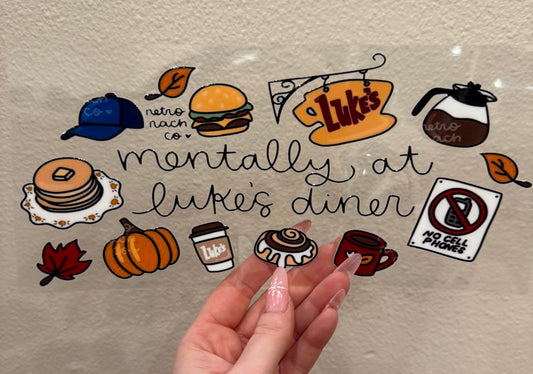 retro
rach
co
LUKE'S
retro
rach
mentally at
luke's diner
NO CELL
PHONES
Luke's